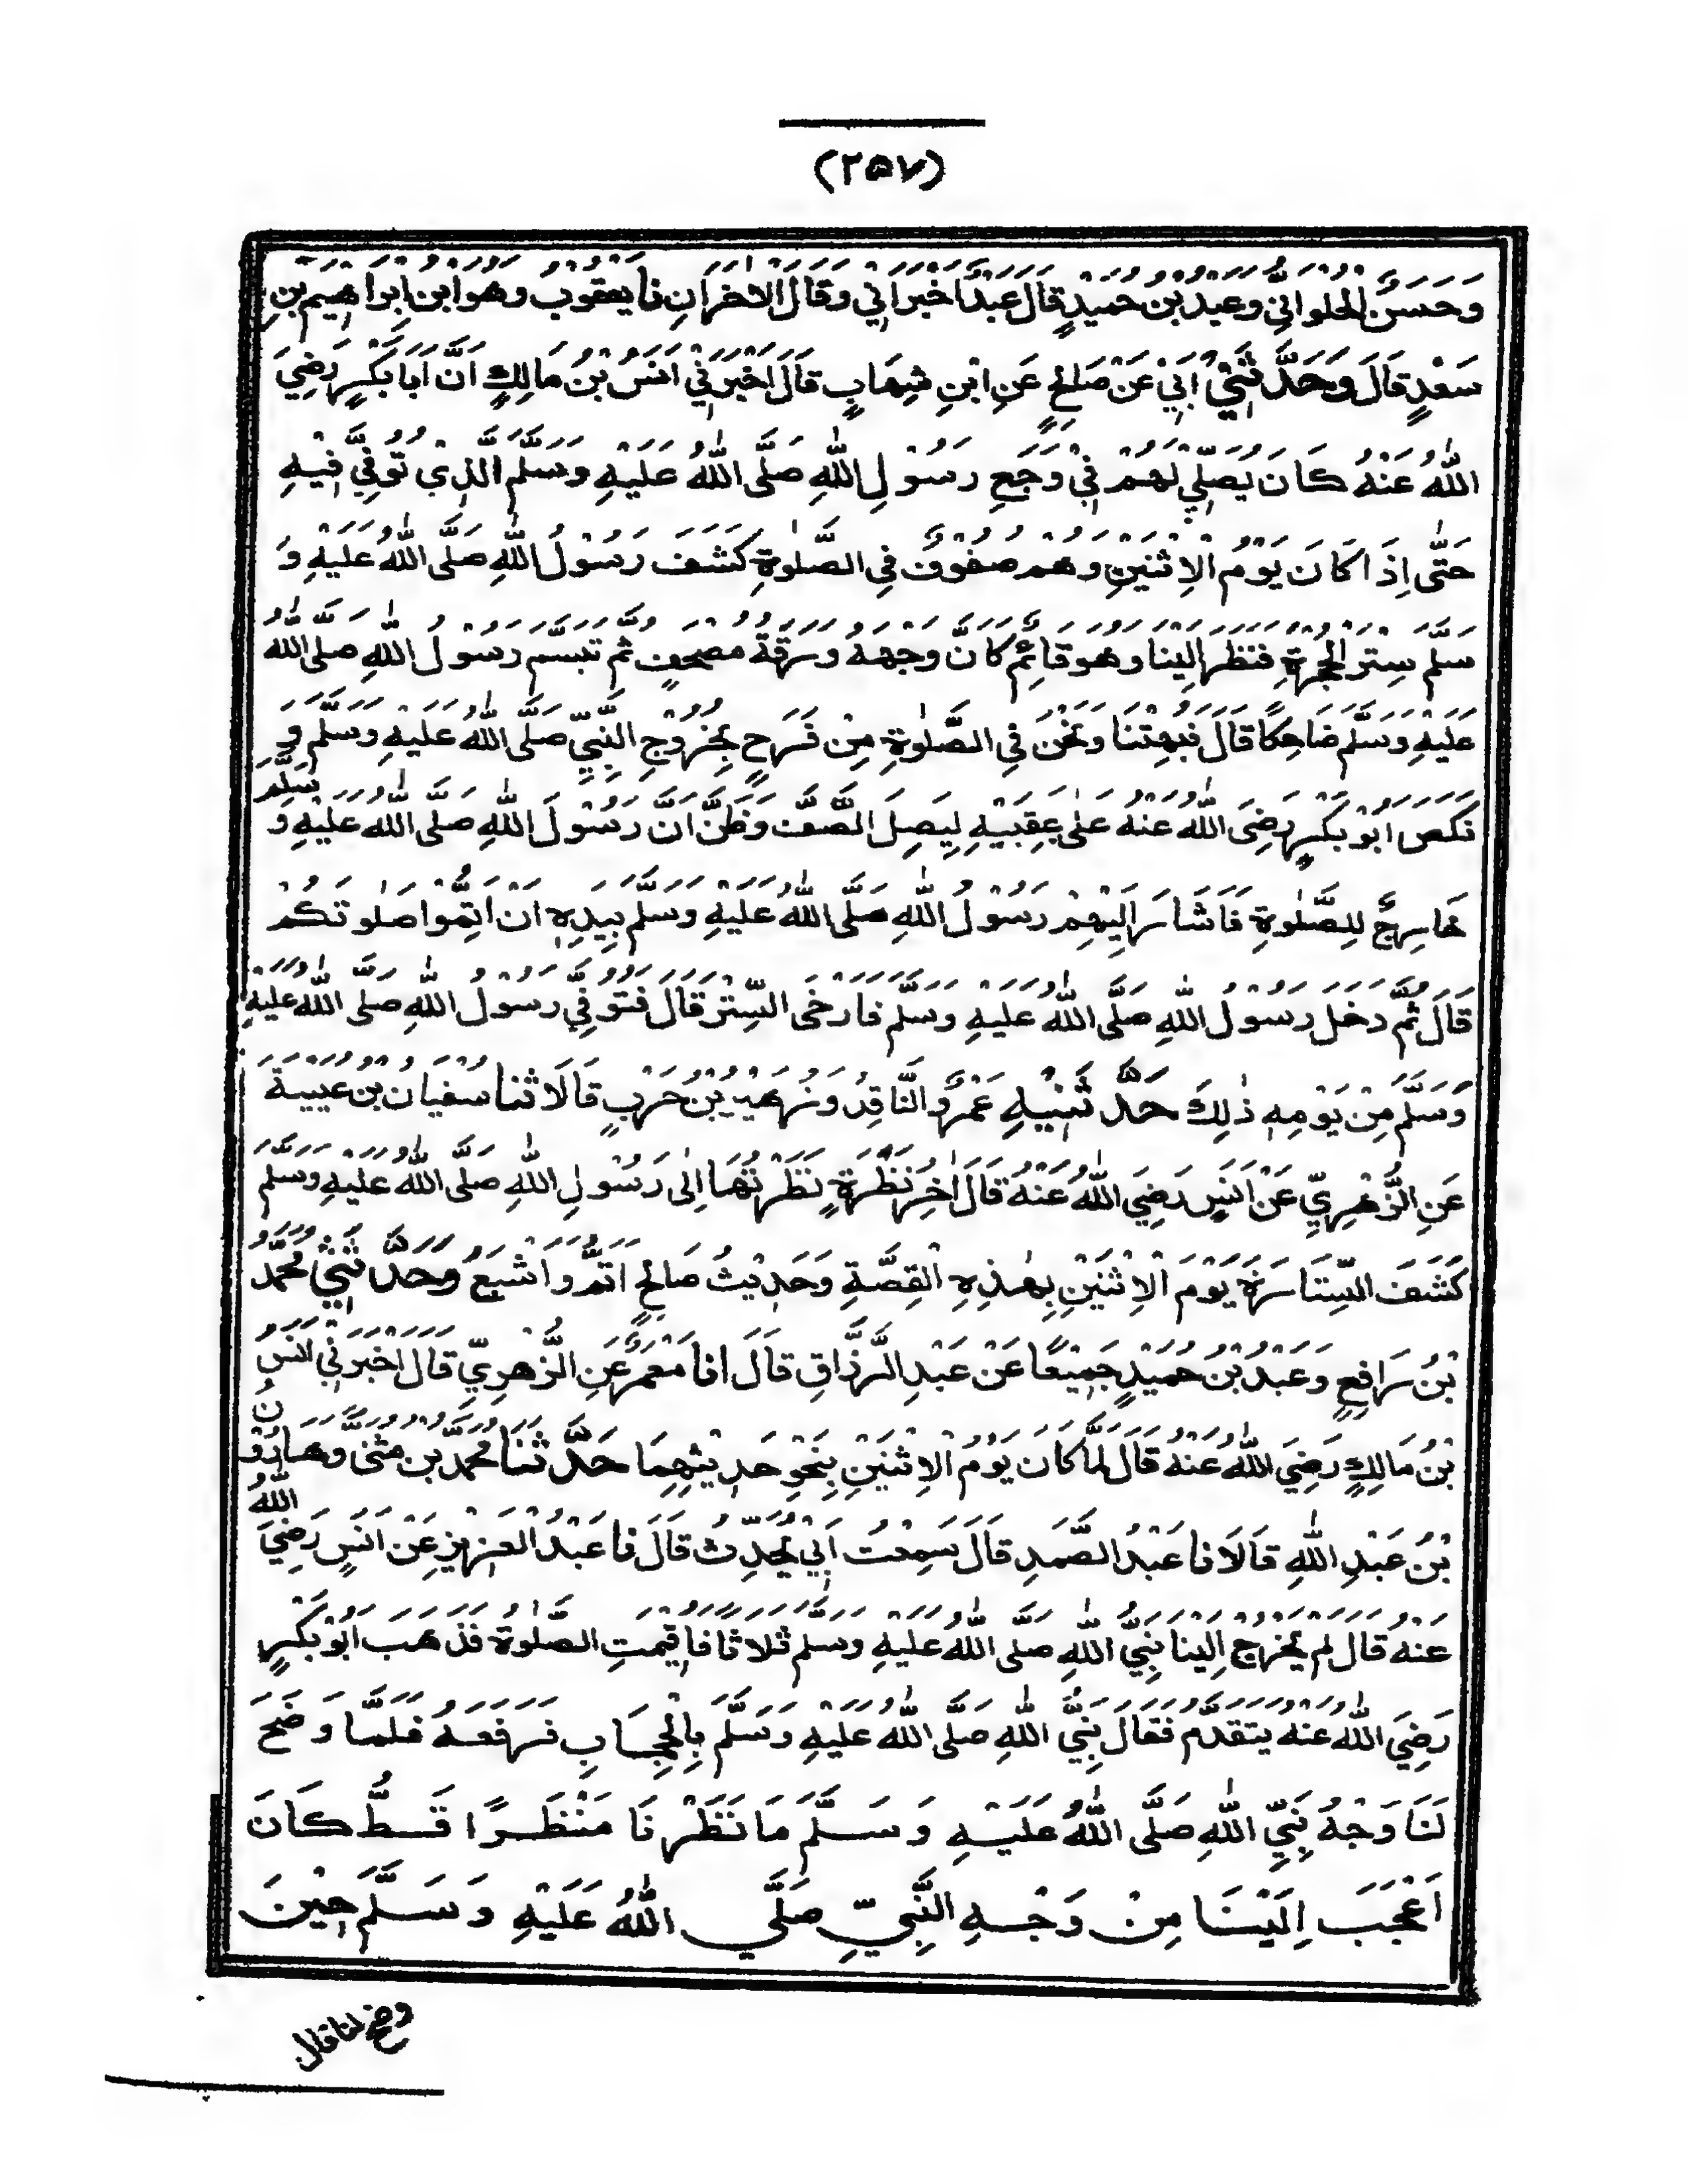 (٢٥٧)
وَحَسَنُ الْحُلْوَانِيُّ وَعَبْدُ بْنُ حُمَيْدٍ قَالَ عَبْدٌ اَخْبَرَانِيْ وَقَالَ الْاٰخَرَانِ نَا يَعْقُوْبُ وَهُوَ ابْنُ اِبْرَاهِيْمَ بْنِ
سَعْدٍ قَالَ وَحَدَّثَنِيْ اَبِيْ عَنْ صَالِحٍ عَنِ ابْنِ شِهَابٍ قَالَ اَخْبَرَنِيْ اَنَسُ بْنُ مَالِكٍ اَنَّ اَبَا بَكْرٍ رَضِيَ
اللّٰهُ عَنْهُ كَانَ يُصَلِّيْ لَهُمْ فِيْ وَجَعِ رَسُوْلِ اللّٰهِ صَلَّى اللّٰهُ عَلَيْهِ وَسَلَّمَ الَّذِيْ تُوُفِّيَ فِيْهِ
حَتّٰى اِذَا كَانَ يَوْمُ الْاِثْنَيْنِ وَهُمْ صُفُوْفٌ فِي الصَّلٰوةِ كَشَفَ رَسُوْلُ اللّٰهِ صَلَّى اللّٰهُ عَلَيْهِ وَ
سَلَّمَ سِتْرَ الْحُجْرَةِ فَنَظَرَ اِلَيْنَا وَهُوَ قَائِمٌ كَاَنَّ وَجْهَهُ وَرَقَةُ مُصْحَفٍ ثُمَّ تَبَسَّمَ رَسُوْلُ اللّٰهِ صَلَّى اللّٰهُ
عَلَيْهِ وَسَلَّمَ ضَاحِكًا قَالَ فَبُهِتْنَا وَنَحْنُ فِي الصَّلٰوةِ مِنْ فَرَحٍ بِخُرُوْجِ النَّبِيِّ صَلَّى اللّٰهُ عَلَيْهِ وَسَلَّمَ وَ
نَكَصَ اَبُوْ بَكْرٍ رَضِىَ اللّٰهُ عَنْهُ عَلٰى عَقِبَيْهِ لِيَصِلَ الصَّفَّ وَظَنَّ اَنَّ رَسُوْلَ اللّٰهِ صَلَّى اللّٰهُ عَلَيْهِ وَ سَلَّمَ
خَارِجٌ لِلصَّلٰوةِ فَاَشَارَ اِلَيْهِمْ رَسُوْلُ اللّٰهِ صَلَّى اللّٰهُ عَلَيْهِ وَسَلَّمَ بِيَدِهٖ اَنْ اَتِمُّوْا صَلٰوتَكُمْ
قَالَ ثُمَّ دَخَلَ رَسُوْلُ اللّٰهِ صَلَّى اللّٰهُ عَلَيْهِ وَسَلَّمَ فَاَرْخَى السِّتْرَ قَالَ فَتُوُفِّيَ رَسُوْلُ اللّٰهِ صَلَّى اللّٰهُ عَلَيْهِ
وَسَلَّمَ مِنْ يَوْمِهٖ ذٰلِكَ حَدَّثَنِيْهِ عَمْرٌو النَّاقِدُ وَزُهَيْرُ بْنُ حَرْبٍ قَالَا ثَنَا سُفْيَانُ بْنُ عُيَيْنَةَ
عَنِ الزُّهْرِيِّ عَنْ اَنَسٍ رَضِيَ اللّٰهُ عَنْهُ قَالَ اٰخِرُ نَظْرَةٍ نَظَرْتُهَا اِلٰى رَسُوْلِ اللّٰهِ صَلَّى اللّٰهُ عَلَيْهِ وَسَلَّمَ
كَشَفَ السِّتَارَةَ يَوْمَ الْاِثْنَيْنِ بِهٰذِهِ الْقِصَّةِ وَحَدِيْثُ صَالِحٍ اَتَمُّ وَاَشْبَعُ وَحَدَّثَنِيْ مُحَمَّدُ
بْنُ رَافِعٍ وَعَبْدُ بْنُ حُمَيْدٍ جَمِيْعًا عَنْ عَبْدِ الرَّزَّاقِ قَالَ اَنَا مَعْمَرٌ عَنِ الزُّهْرِيِّ قَالَ اَخْبَرَنِيْ اَنَسُ
بْنُ مَالِكٍ رَضِيَ اللّٰهُ عَنْهُ قَالَ لَمَّا كَانَ يَوْمُ الْاِثْنَيْنِ بِنَحْوِ حَدِيْثِهِمَا حَدَّثَنَا مُحَمَّدُ بْنُ مُثَنّٰى وَهَارُوْنُ
بْنُ عَبْدِ اللّٰهِ قَالَا نَا عَبْدُ الصَّمَدِ قَالَ سَمِعْتُ اَبِيْ يُحَدِّثُ قَالَ نَا عَبْدُ الْعَزِيْزِ عَنْ اَنَسٍ رَضِيَ اللّٰهُ
عَنْهُ قَالَ لَمْ يَخْرُجْ اِلَيْنَا نَبِيُّ اللّٰهِ صَلَّى اللّٰهُ عَلَيْهِ وَسَلَّمَ ثَلَاثًا فَاُقِيْمَتِ الصَّلٰوةُ فَذَهَبَ اَبُوْ بَكْرٍ
رَضِيَ اللّٰهُ عَنْهُ يَتَقَدَّمُ فَقَالَ نَبِيُّ اللّٰهِ صَلَّى اللّٰهُ عَلَيْهِ وَسَلَّمَ بِالْحِجَابِ فَرَفَعَهُ فَلَمَّا وَضَحَ
لَنَا وَجْهُ نَبِيِّ اللّٰهِ صَلَّى اللّٰهُ عَلَيْهِ وَسَلَّمَ مَا نَظَرْنَا مَنْظَرًا قَطُّ كَانَ
اَعْجَبَ اِلَيْنَا مِنْ وَجْهِ النَّبِيِّ صَلَّي اللّٰهُ عَلَيْهِ وَسَلَّمَ حِيْنَ
وضح لنا قال